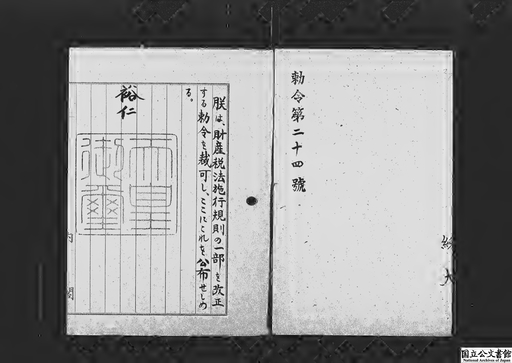 勅令第二十四號
朕は、財産税法施行規則の一部を改正
する勅令を裁可し、ここにこれを公布せしめ
る。
裕仁
天皇
御璽
内閣
国立公文書館
National Archives of Japan